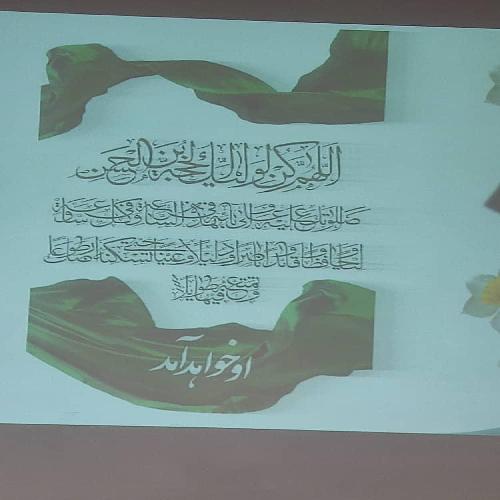 اللهم كن لوليك الحجة بن الحسن
صلواتك عليه وعلى آبائه في هذه الساعة وفي كل ساعة
ولیا وحافظا وقائدا وناصرا ودلیلا وعینا حتى تسكنه أرضك طوعا
وتمتعه فیها طویلا
او خواهد آمد